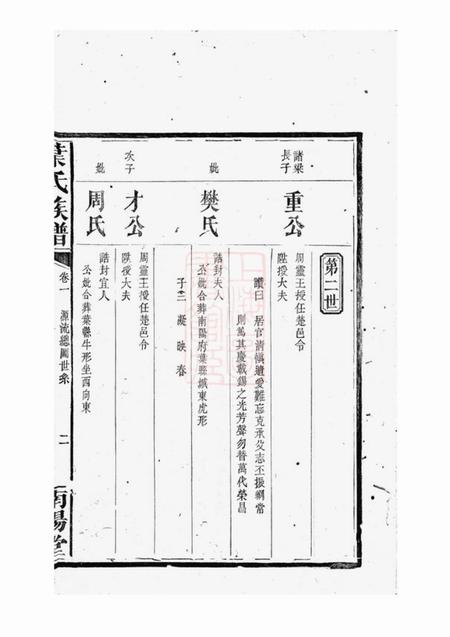 第二世
諸梁長子
重公
周靈王授任楚邑令
陞授大夫
讚曰 居官清慎遺愛難忘克承父志丕振綱常
則篤其慶載錫之光芳聲勿替萬代榮昌
妣
樊氏
誥封夫人
公妣合葬南陽府葉縣城東虎形
子三 凝 映 春
次子
才公
周靈王授任楚邑令
陞授大夫
妣
周氏
誥封宜人
公妣合葬葉縣牛形坐西向東
葉氏族譜
卷一 源流總圖世系
二
南陽堂